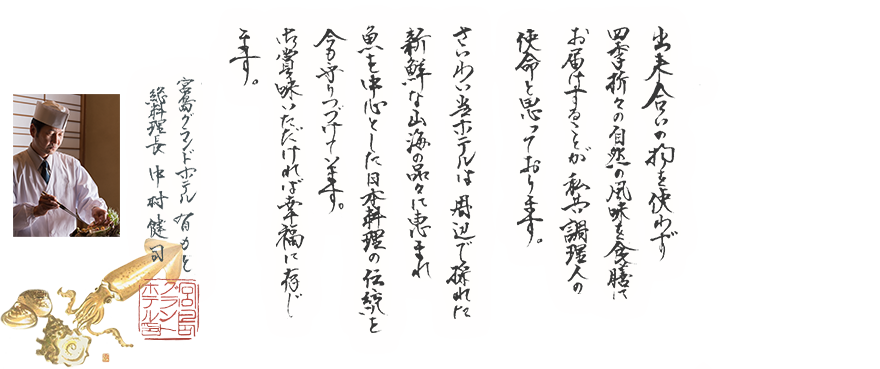 出来合いの物を使わず
四季折々の自然の風味を食膳に
お届けすることが私共調理人の
使命と思っております。
さいわい当ホテルは周辺で採れた
新鮮な山海の品々に恵まれ
魚を中心とした日本料理の伝統を
今も守りつづけています。
ご賞味いただければ幸福に存じ
ます。
宮島グランドホテル 有もと
総料理長 中村健司
宮島
グランド
ホテル